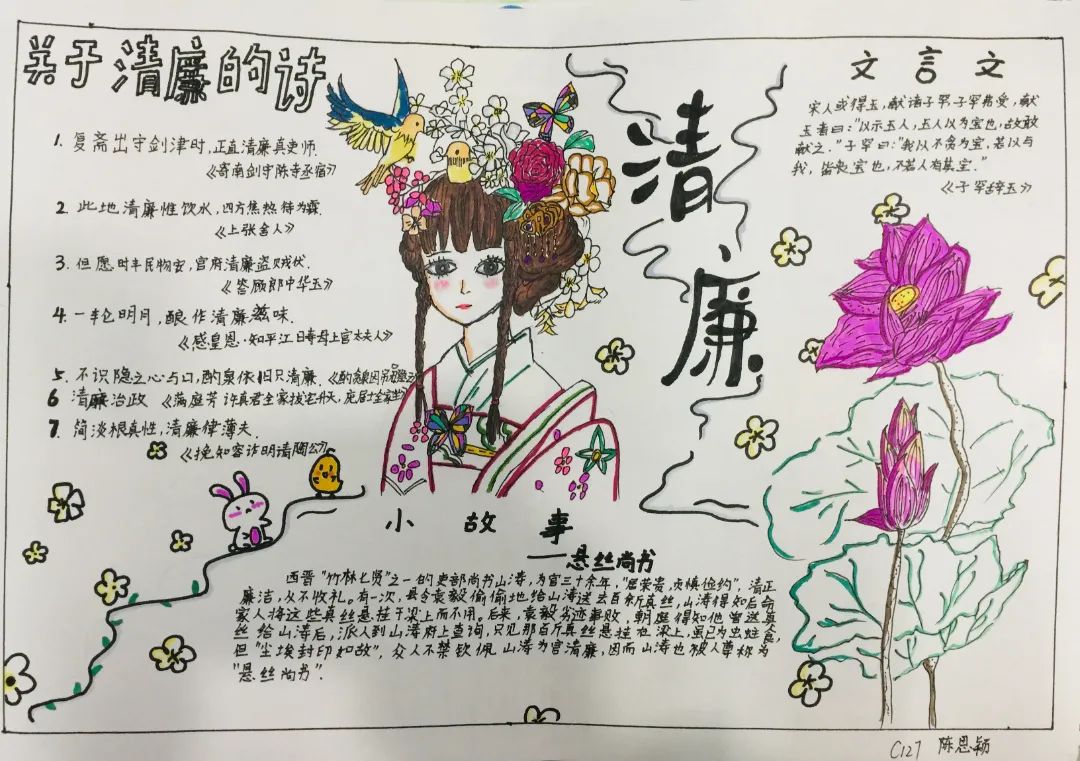 关于清廉的诗
1. 复斋出守剑津时,正直清廉真吏师.
《寄南剑守陈寺丞宿》
2. 此地清廉惟饮水,四方焦热待为霖.
《上张舍人》
3. 但愿时丰民物安,官府清廉盗贼伏.
《答顾郎中华玉》
4. 一轮明月,酿作清廉滋味.
《感皇恩·知平江日寿母上官太夫人》
5. 不识隐之心与口,酌泉依旧只清廉.
6 清廉治政 《满庭芳 许真君全家拔宅升天,庞居士全家坐
7. 简淡根真性,清廉律薄夫.
《挽知容诈明请陶公》
清廉
文言文
宋人或得玉,献诸子罕.子罕弗受,献
玉者曰:"以示玉人,玉人以为宝也,故敢
献之."子罕曰:"我以不贪为宝,若以与
我,皆丧宝也,不若人有其宝."
《子罕辞玉》
小故事
——悬丝尚书
西晋"竹林七贤"之一的吏部尚书山涛,为官三十余年,"居荣贵,贞慎俭约",清正
廉洁,从不收礼。有一次,县令袁毅偷偷地给山涛送去百来斤真丝,山涛得知后命
家人将这些真丝悬挂于梁上而不用。后来,袁毅劣迹事败,朝庭得知他曾送真
丝给山涛后,派人到山涛府上查询,只见那百斤真丝悬挂在梁上,虽已为虫蛀食,
但"尘埃封印如故",众人不禁钦佩山涛为官清廉,因而山涛也被人尊称为
"悬丝尚书".
C127 陈恩颖